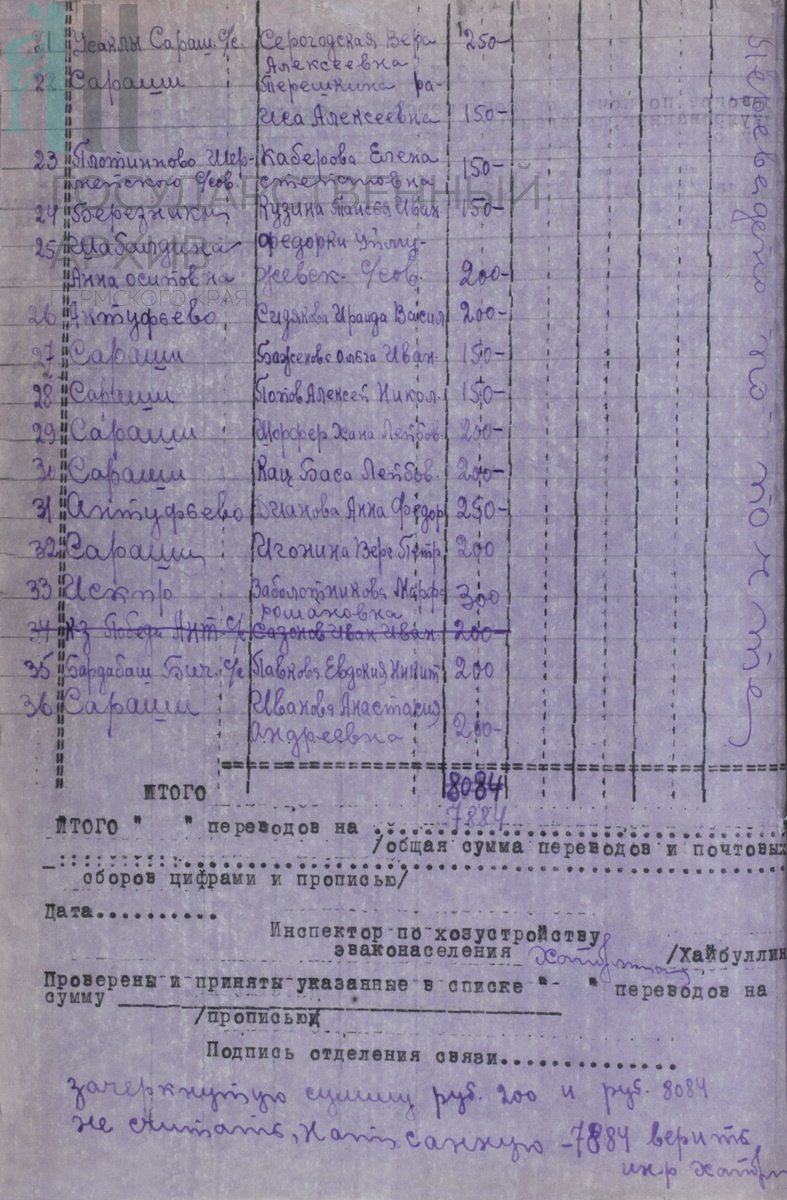 21 Усаклы Сараш. С/с. Серогодская Вера 250-
Алексеевна
22 Сараши Терешкина ра-
иса Алексеевна 150-
23 Плотниково Шер- Каберова Елена 150-
метского с/сов. степановна
24 Березники Кузина Таисея Иван 150-
25 Шабалдина Федорки
Анна осиповна с/сов. 200-
26 Антуфьево Сидякова Ираида Васил 200-
27 Сараши Баженова Ольга Иван. 150-
28 Сараши Попов Алексей Никол. 150-
29 Сараши Шорфер Хана Лейбов. 200-
30 Сараши Кац Баса Лейбов. 200-
31 Антуфьево Анна Федор 250-
32 Сараши Игонина Вера Петр. 200
33 Искра Заболотникова Марфа 300
романовна
34 К-з Победа Ант. С/с Сазонов Иван Иван 200-
35 Бардабаш Бич. С/с Павнова Евдокия Никит 200
36 Сараши Иванова Анастасия
Андреевна 200-
ИТОГО 8084
7884
ИТОГО " " переводов на ..............................
/общая сумма переводов и почтовых
сборов цифрами и прописью/
Дата...........
Инспектор по хозустройству
эваконаселения /Хайбуллин
Проверены и приняты указанные в списке "- " переводов на
сумму
/прописью/
Подпись отделения связи...............
зачеркнутую сумму руб. 200 и руб. 8084
не считать, написанную -7884 верить
ГОСУДАРСТВЕННЫЙ
АРХИВ
ПЕРМСКОГО КРАЯ